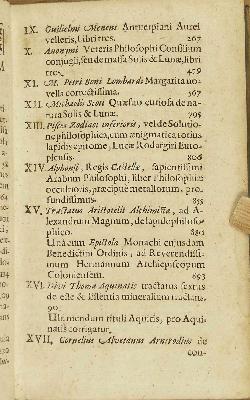 IX. Guilielmi Menens Antverpiani Aurei
velleris, Libri tres. 267
X. Anonymi Veteris Philosophi Consilium
conjugii, seu de massa Solis & Lunæ, libri
tres. 479
XI. M. Petri Boni Lombardi Margarita no-
vella correctissima. 567
XII. Michaelis Scoti Quæstio curiosa de na-
tura Solis & Lunæ. 795
XIII. Piscis Zodiaci inferioris, vel de Solutio-
ne philosophico, cum ænigmatica totius
lapidis epitome, Lucæ Rodargiri Euto-
piensis. 806
XIV. Alphonsi, Regis Castellæ, sapientissimi
Arabum Philosophi, liber Philosophiæ
occultioris, præcipuè metallorum, pro-
fundissimus. 855
XV. Tractatus Aristotelis Alchimistæ, ad A-
lexandrum Magnum, de lapide philoso-
phico. 880
Unà cum Epistola Monachi cujusdam
Benedictini Ordinis, ad Reverendissi-
mum Hermannum Archiepiscopum
Coloniensem. 893
XVI. Divi Thomæ Aquinatis tractatus sextus
de esse & essentia mineralium tractans,
90.
Ubi mendum tituli Aquitis, pro Aqui-
natis corrigatur.
XVII. Cornelius Alvetanus Arnsrodius de
con-